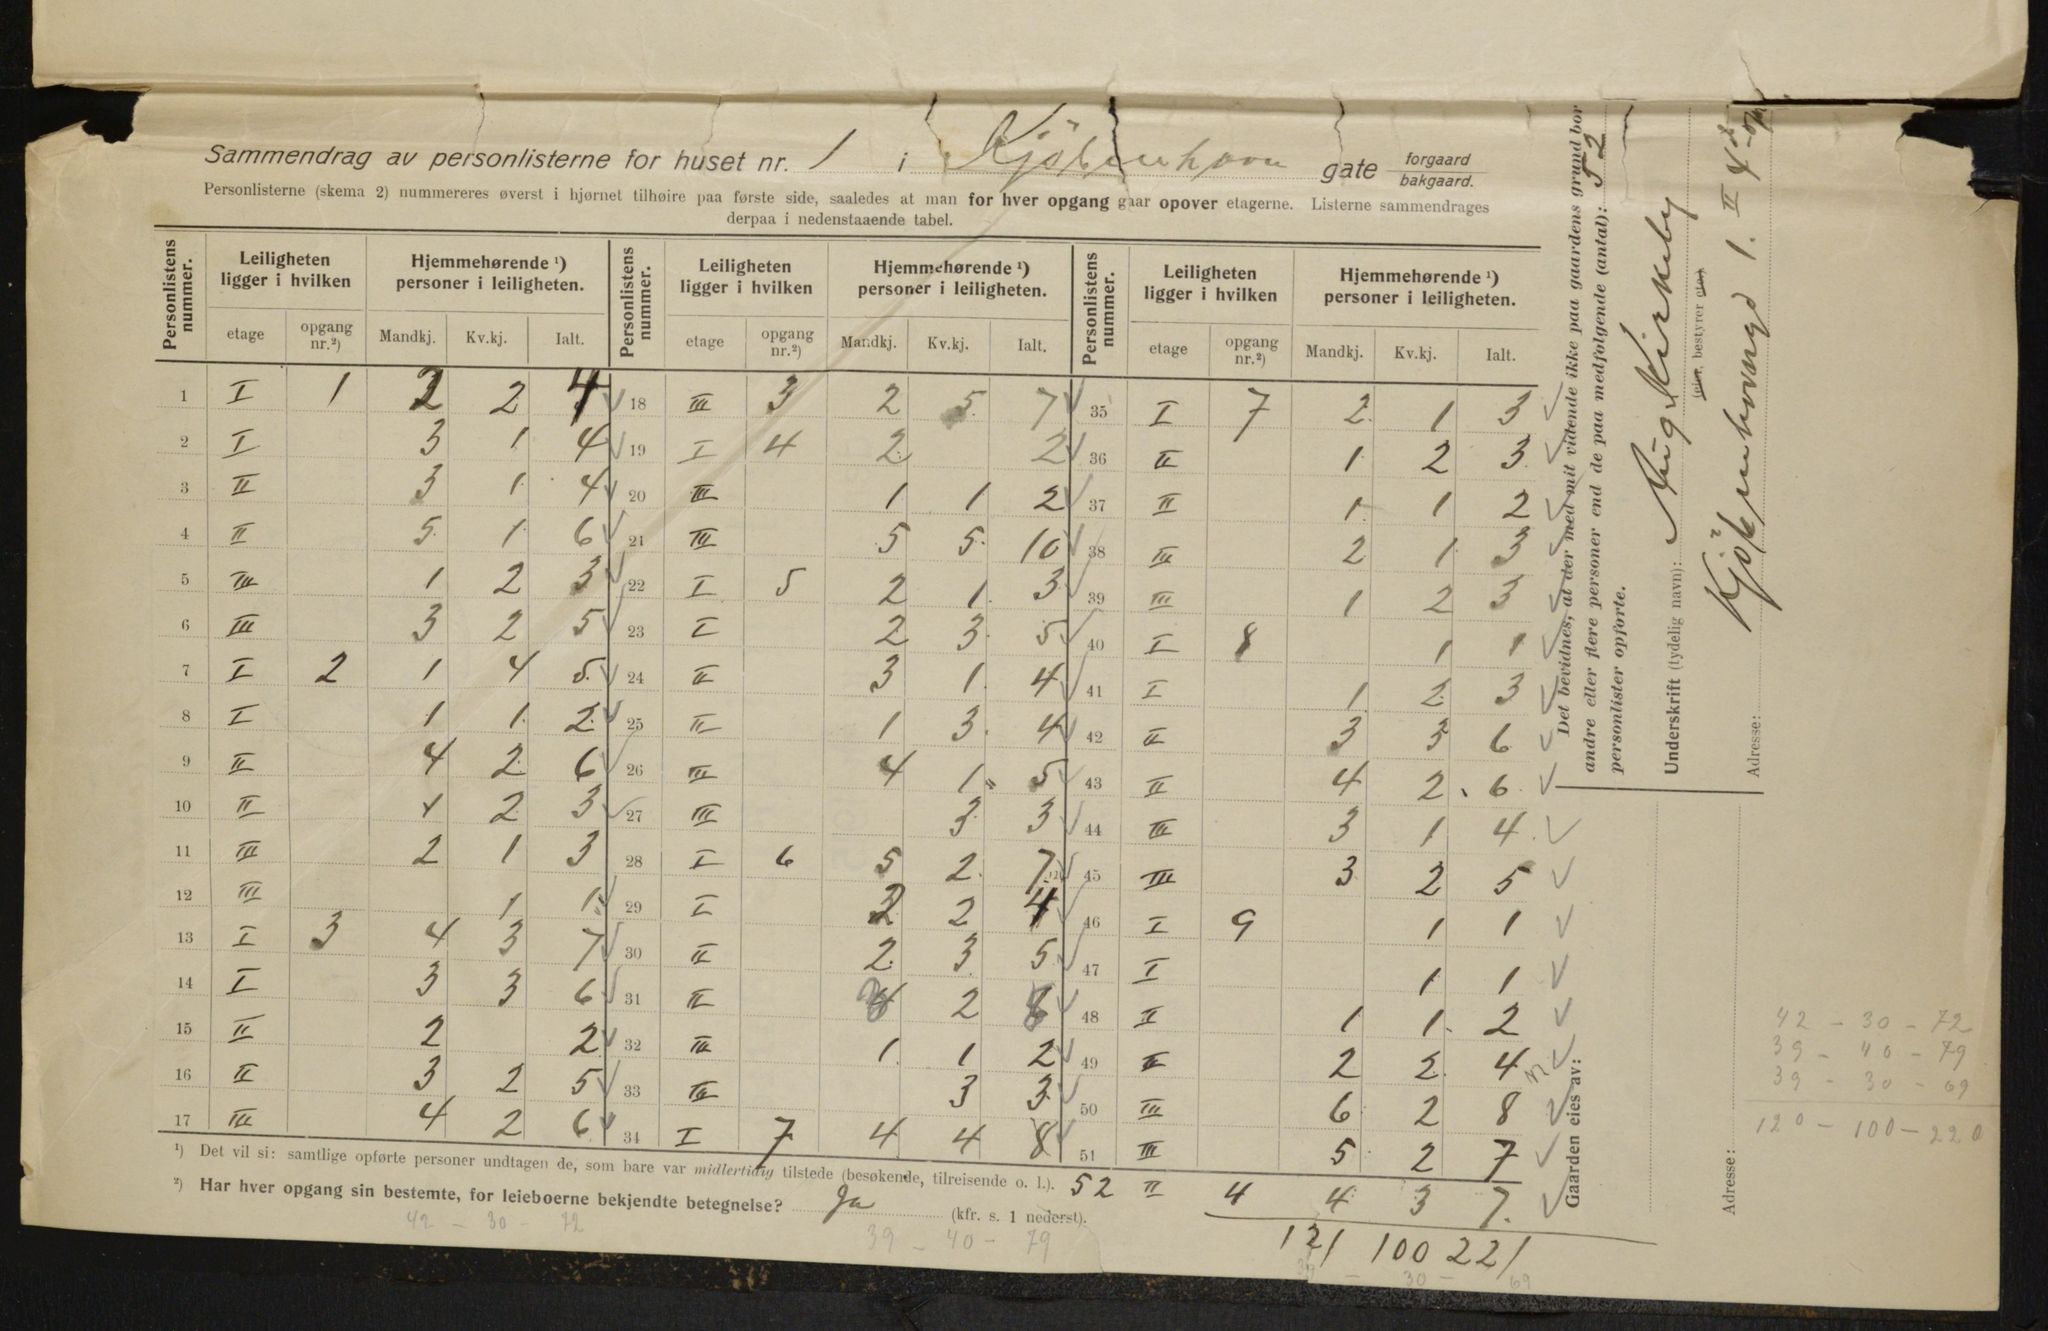 Sammendrag av personlisterne for huset nr. 1 i Kjøbenhavn gate forgaard bakgaard.
Personlisterne (skema 2) nummereres øverst i hjørnet tilhøire paa første side, saaledes at man for hver opgang gaar opover etagerne. Listerne sammendrages
derpaa i nedenstaaende tabel.
Personlistens nummer. Leiligheten ligger i hvilken Hjemmehørende ¹) personer i leiligheten. Personlistens nummer. Leiligheten ligger i hvilken Hjemmehørende ¹) personer i leiligheten. Personlistens nummer. Leiligheten ligger i hvilken Hjemmehørende ¹) personer i leiligheten.
etage opgang nr.²) Mandkj. Kv.kj. Ialt. etage opgang nr.²) Mandkj. Kv.kj. Ialt. etage opgang nr.²) Mandkj. Kv.kj. Ialt.
1 I 1 2 2 4 18 III 3 2 5 7 35 I 7 2 1 3
2 I 3 1 4 19 I 4 2 2 36 II 1 2 3
3 II 3 1 4 20 III 1 1 2 37 II 1 1 2
4 II 5 1 6 21 III 5 5 10 38 III 2 1 3
5 III 1 2 3 22 I 5 2 1 3 39 III 1 2 3
6 III 3 2 5 23 I 2 3 5 40 I 8 1 1
7 I 2 1 4 5 24 II 3 1 4 41 I 1 2 3
8 I 1 1 2 25 II 1 3 4 42 II 3 3 6
9 II 4 2 6 26 III 4 1 5 43 II 4 2 6
10 II 1 2 3 27 III 3 3 44 III 3 1 4
11 III 2 1 3 28 I 6 5 2 7 45 III 3 2 5
12 III 1 1 29 I 2 2 4 46 I 9 1 1
13 I 3 4 3 7 30 II 2 3 5 47 I 1 1
14 I 3 3 6 31 II 2 48 II 1 1 2
15 II 2 2 32 III 1 1 2 49 II 2 2 4
16 II 3 2 5 33 III 3 3 50 III 6 2 8
17 III 4 2 6 34 I 7 4 4 8 51 III 5 2 7
¹) Det vil si: samtlige opførte personer undtagen de, som bare var midlertidig tilstede (besøkende, tilreisende o. l.). 52 II 4 4 3 7
²) Har hver opgang sin bestemte, for leieboerne bekjendte betegnelse? Ja (kfr. s. 1 nederst).
121 100 221
42 - 30 - 72
39 - 40 - 79
39 - 30 - 69
Det bevidnes, at der med mit vidende ikke paa gaardens grund bor
andre eller flere personer end de paa medfølgende (antal): 52
personlister opførte.
Underskrift (tydelig navn): Aug. Kirkeby
(eier, bestyrer etc.)
Adresse: Kjøbenhavngd 1. II 4 op.
Gaarden eies av:
Adresse:
42 - 30 - 72
39 - 40 - 79
39 - 30 - 69
120 - 100 - 220